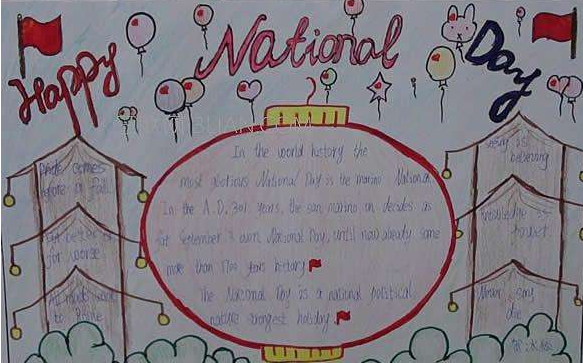 Happy National Day
In the world history the
most glorious National Day is the marino National
In the A.D. 301 years, the san marino on decides as
for September 3 own National Day, until now already some
more than 1700 years history
The National Day is a national political
nature longest holiday
Pride comes
before a fall
for better or
for worse
All roads lead
to Rome
seeing is
believing
knowledge is
power
Never say
die